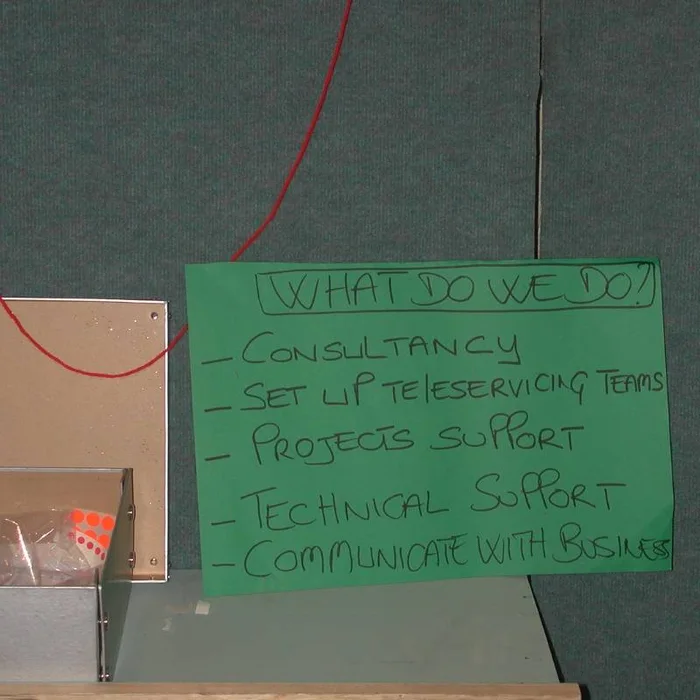 WHAT DO WE DO?
- CONSULTANCY
- SET UP TElESERVICING TEAMS
- PROJECTS SUPPORT
- TECHNICAL SUPPORT
- COMMUNICATE WITH BUSINESS